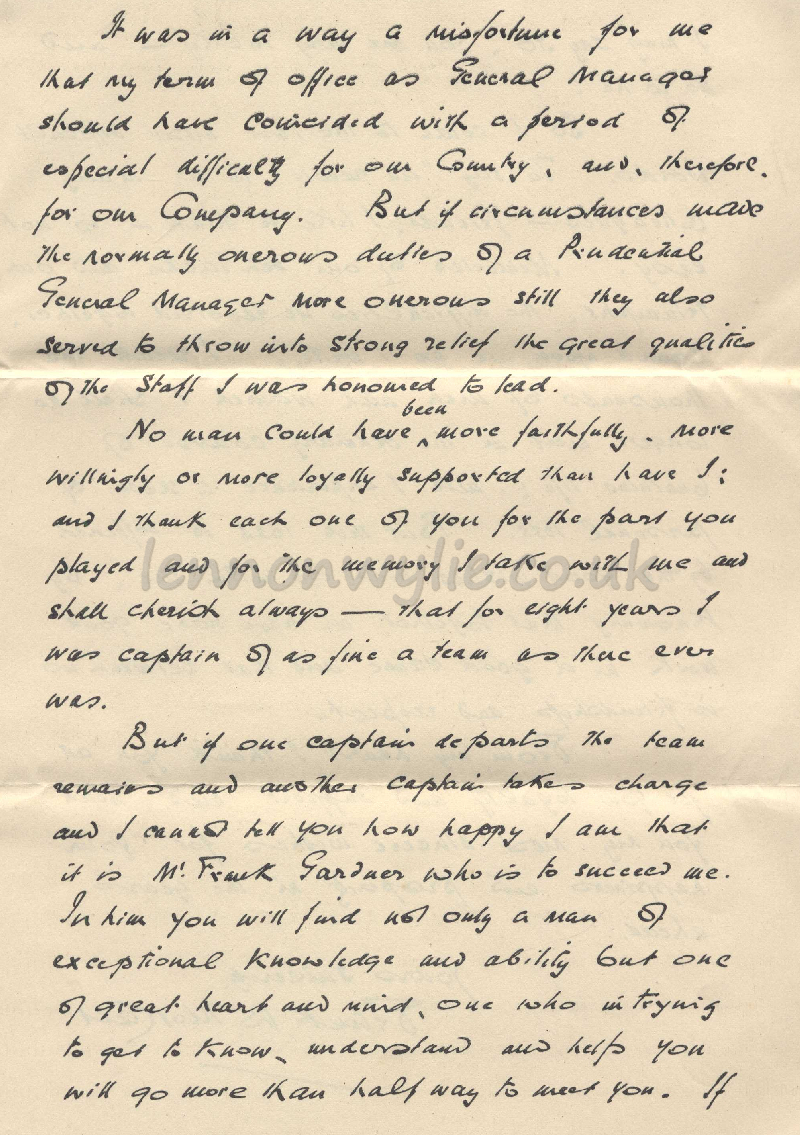 It was in a way a misfortune for me
that my term of office as General Manager
should have coincided with a period of
especial difficulty for our Country, and, therefore,
for our Company. But if circumstances made
the normally onerous duties of a Prudential
General Manager more onerous still they also
served to throw into strong relief the great qualities
of the Staff I was honoured to lead.
been
No man could have ^ more faithfully, more
willingly or more loyally supported than have I;
and I thank each one of you for the part you
played and for the memory I take with me and
lennonwylie.co.uk
shall cherish always — that for eight years I
was captain of as fine a team as there ever
was.
But if one captain departs the team
remains and another captain takes charge
and I cannot tell you how happy I am that
it is Mr. Frank Gardner who is to succeed me.
In him you will find not only a man of
exceptional knowledge and ability but one
of great heart and mind, one who in trying
to get to know, understand and help you
will go more than half way to meet you. If